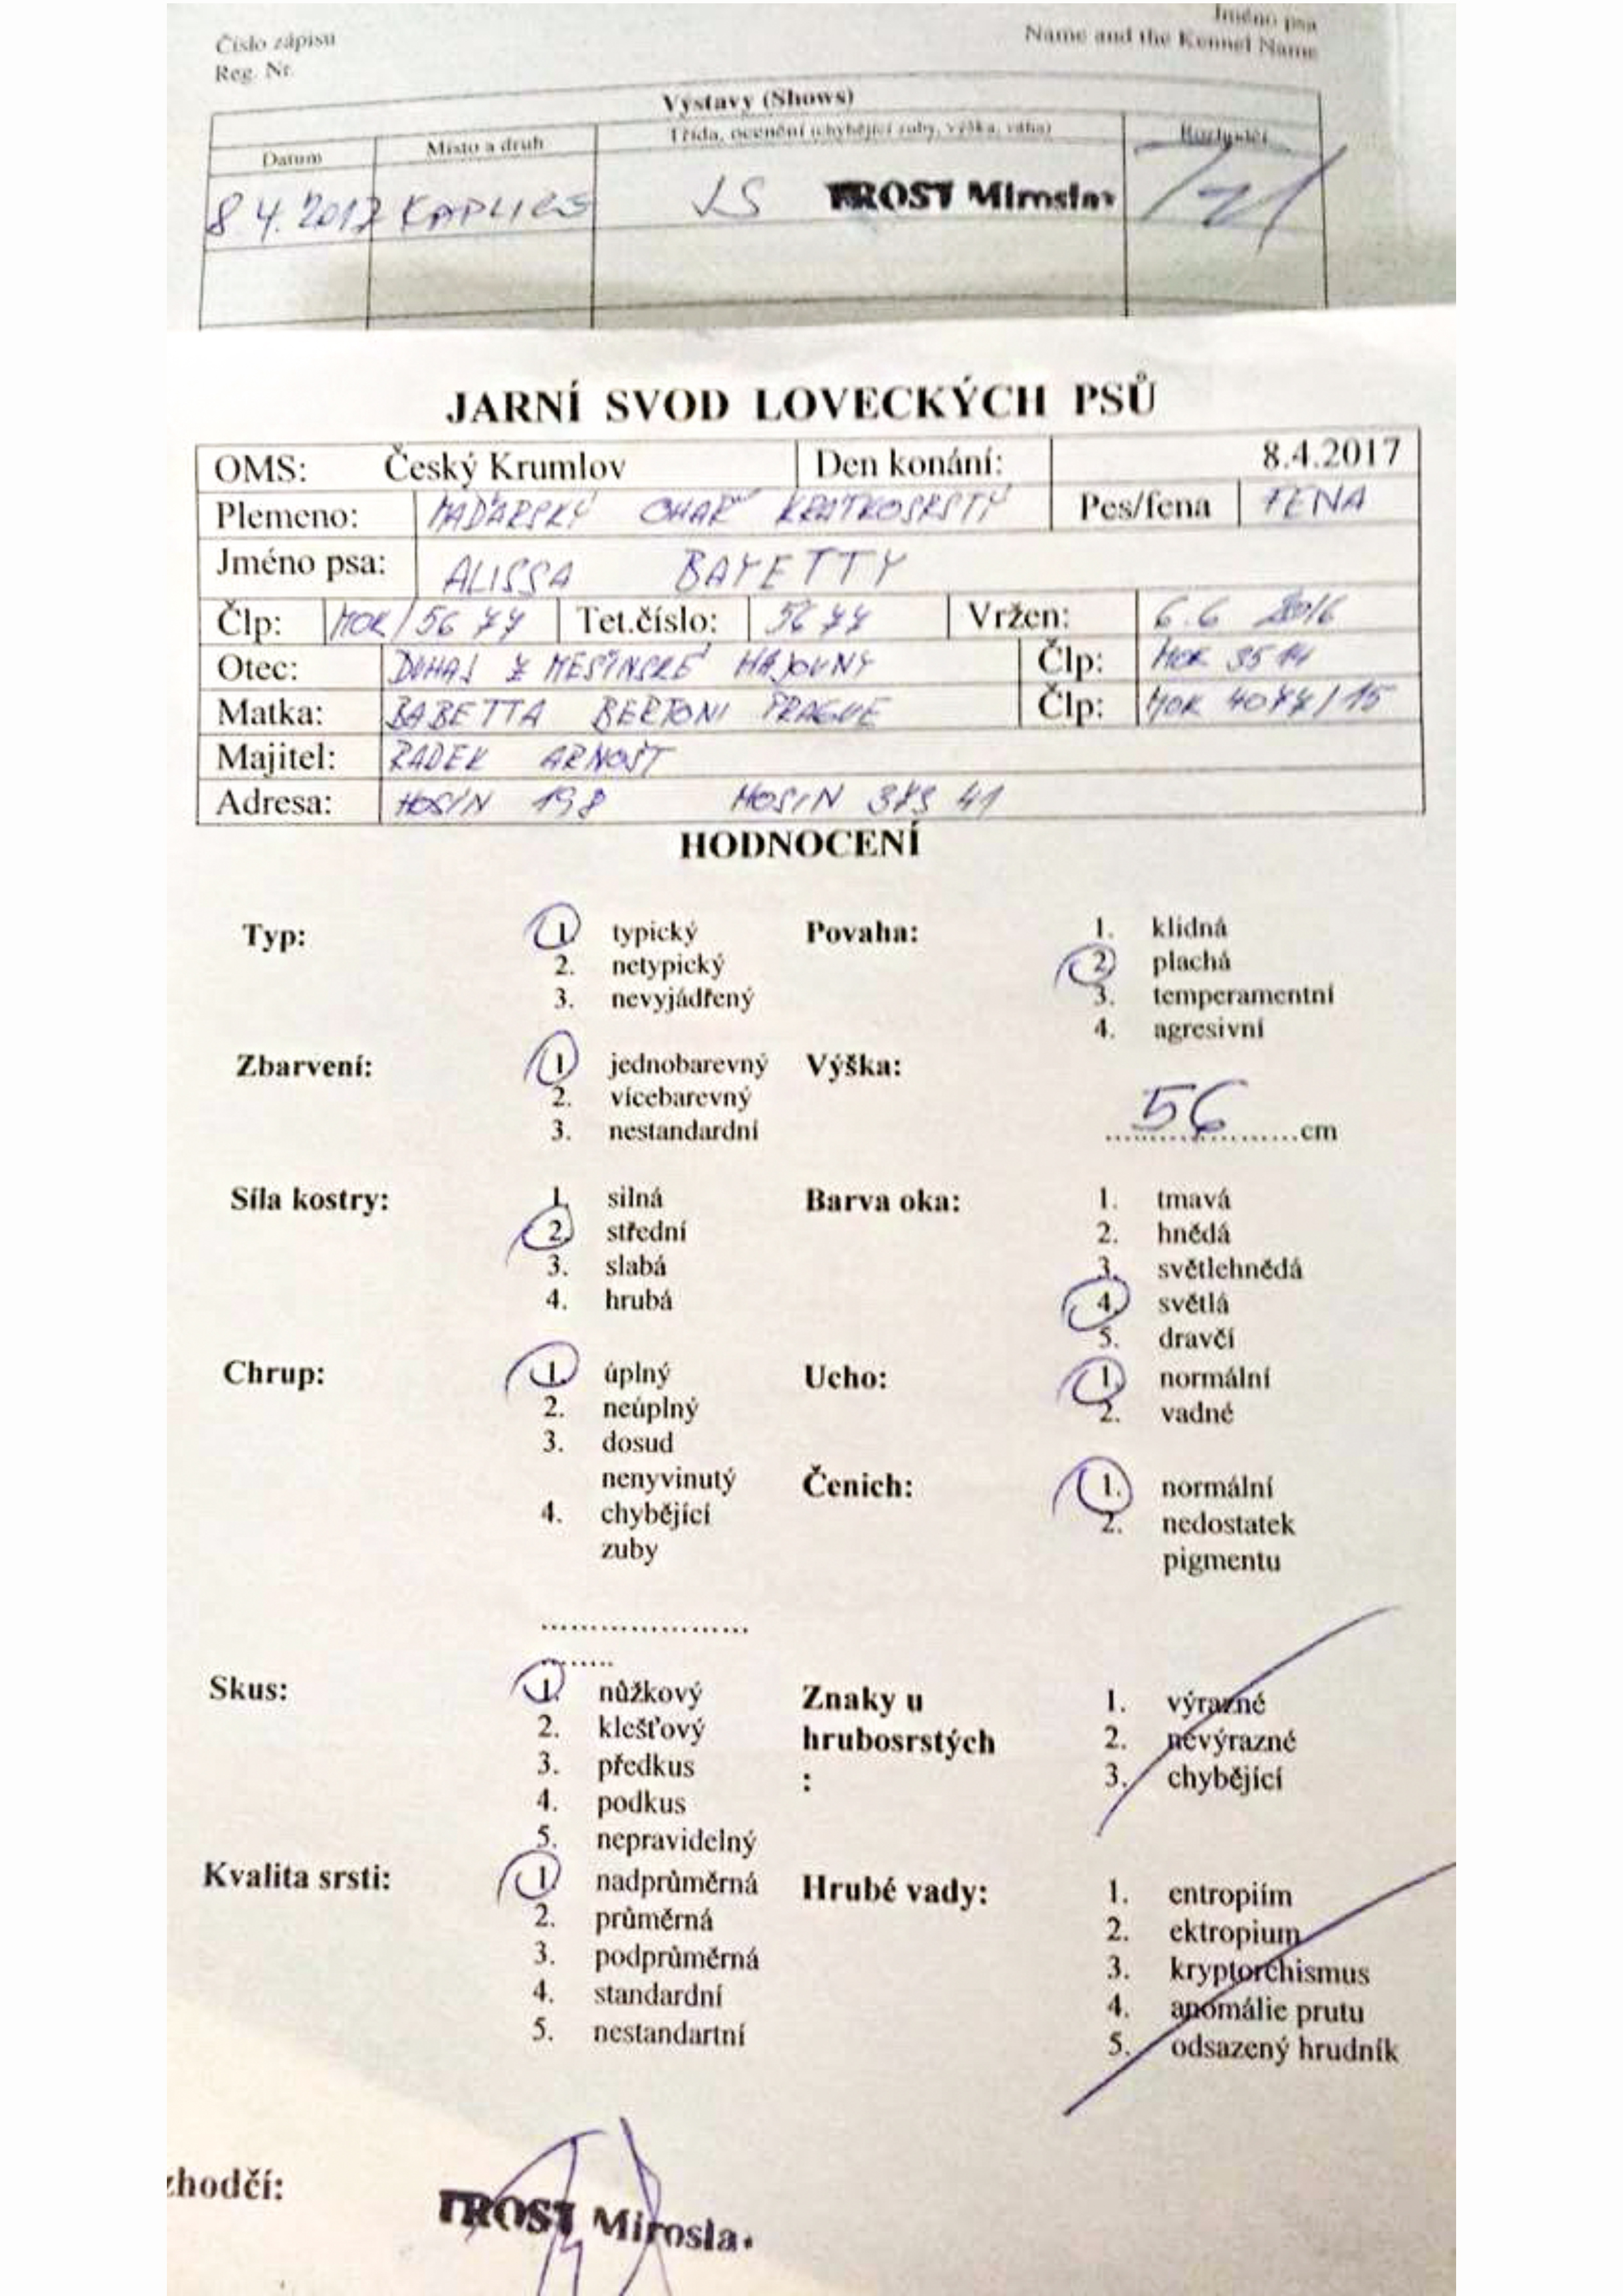 Číslo zápisu
Reg. Nr.
Jméno psa
Name and the Kennel Name
Výstavy (Shows)
Datum Místo a druh Třída, ocenění (chybějící zuby, výška, váha) Rozhodčí
8.4.2017 KAPLICE JS TROST Miroslav
JARNÍ SVOD LOVECKÝCH PSŮ
OMS: Český Krumlov Den konání: 8.4.2017
Plemeno: MAĎARSKÝ OHAŘ KRÁTKOSRSTÝ Pes/fena FENA
Jméno psa: ALISSA BAYETTY
Člp: MOK/5677 Tet.číslo: 5677 Vržen: 6.6 2016
Otec: DUHAJ Z MĚŠÍNSKÉ HÁJOVNY Člp: MOK 3514
Matka: BABETTA BERTONI PRAGUE Člp: MOK 4077/15
Majitel: RADEK ARNOŠT
Adresa: HOSÍN 198 HOSÍN 373 41
HODNOCENÍ
Typ: 1. typický Povaha: 1. klidná
2. netypický 2. plachá
3. nevyjádřený 3. temperamentní
4. agresivní
Zbarvení: 1. jednobarevný Výška:
2. vícebarevný
3. nestandardní 56 cm
Síla kostry: 1. silná Barva oka: 1. tmavá
2. střední 2. hnědá
3. slabá 3. světlehnědá
4. hrubá 4. světlá
5. dravčí
Chrup: 1. úplný Ucho: 1. normální
2. neúplný 2. vadné
3. dosud
nenyvinutý Čenich: 1. normální
4. chybějící 2. nedostatek
zuby pigmentu
Skus: 1. nůžkový Znaky u 1. výrazné
2. klešťový hrubosrstých 2. nevýrazné
3. předkus : 3. chybějící
4. podkus
5. nepravidelný
Kvalita srsti: 1. nadprůměrná Hrubé vady: 1. entropiím
2. průměrná 2. ektropium
3. podprůměrná 3. kryptorchismus
4. standardní 4. anomálie prutu
5. nestandartní 5. odsazený hrudník
zhodčí: TROST Mirosla